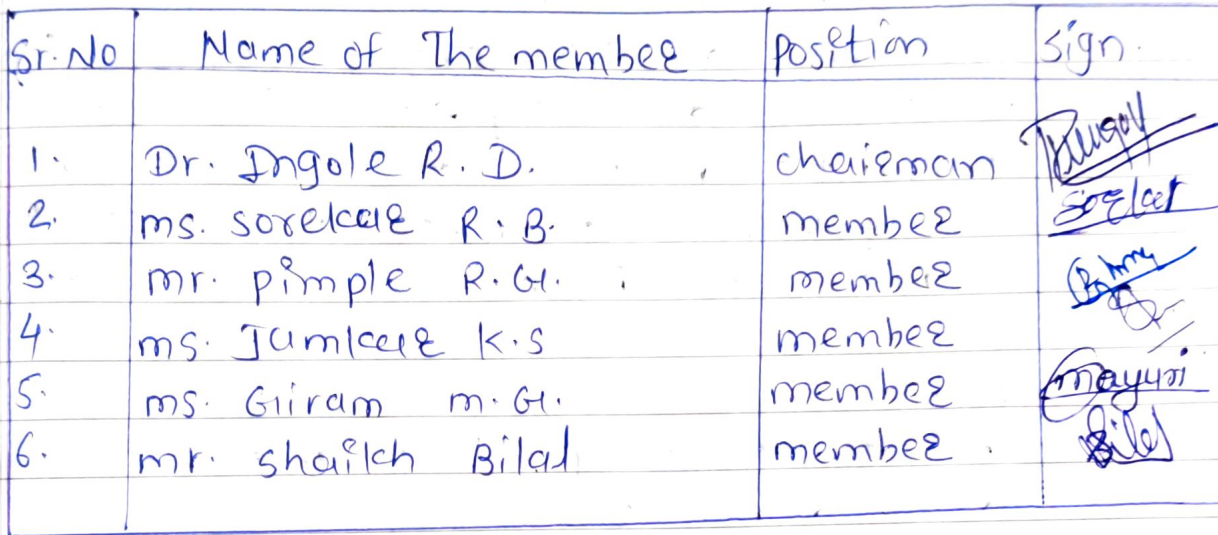 Sr. No Name of The member Position Sign.
1. Dr. Ingole R. D. chairman
2. ms. sorekar R. B. member
3. mr. pimple R. G. member
4. ms. Jamkar K.S member
5. ms. Giram m. G. member mayuri
6. mr. shaikh Bilal member Bilal